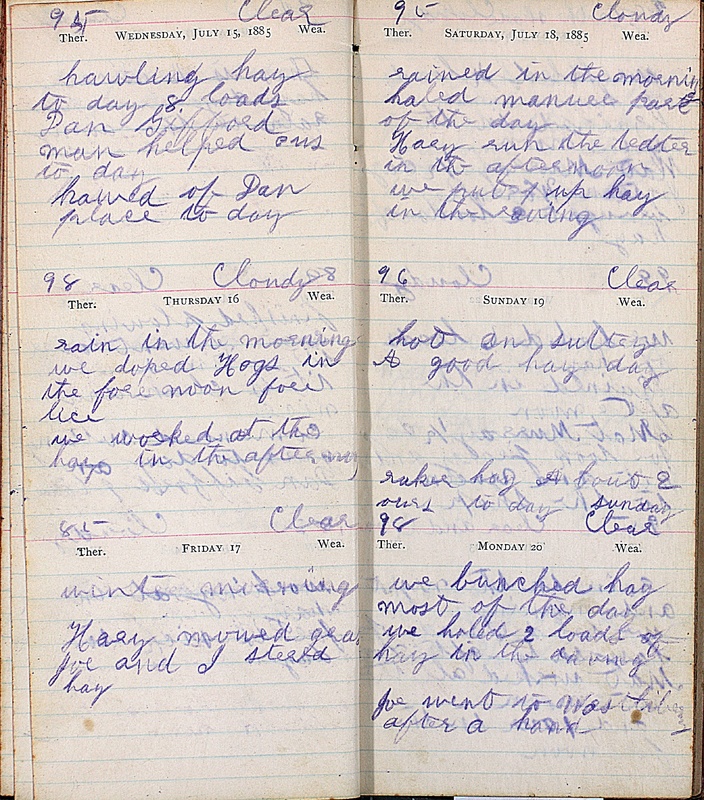 95 Clear
Ther. WEDNESDAY, JULY 15, 1885 Wea.
hawling hay
to day 8 loads
Dan Gifford
man helped ous
to day
hawed of Dan
place to day
98 Cloudy
Ther. THURSDAY 16 Wea.
rain in the morning
we doped Hogs in
the fore noon foer
lice
we worked at the
hay in the after
85 Clear
Ther. FRIDAY 17 Wea.
Harry mowed gras
Joe and I stered
hay
95 Cloudy
Ther. SATURDAY, JULY 18, 1885 Wea.
rained in the mornin
haled manuee part
of the day
Harry run the tedter
in th afternoon
we put up hay
in the eving
96 Clear
Ther. SUNDAY 19 Wea.
hot an sultey
A good hay day
rakee hay About 2
ours to day sunday
98 Clear
Ther. MONDAY 20 Wea.
we bunched hay
most of the day
we holed 2 loads of
hay in the
Joe went to
after a hand